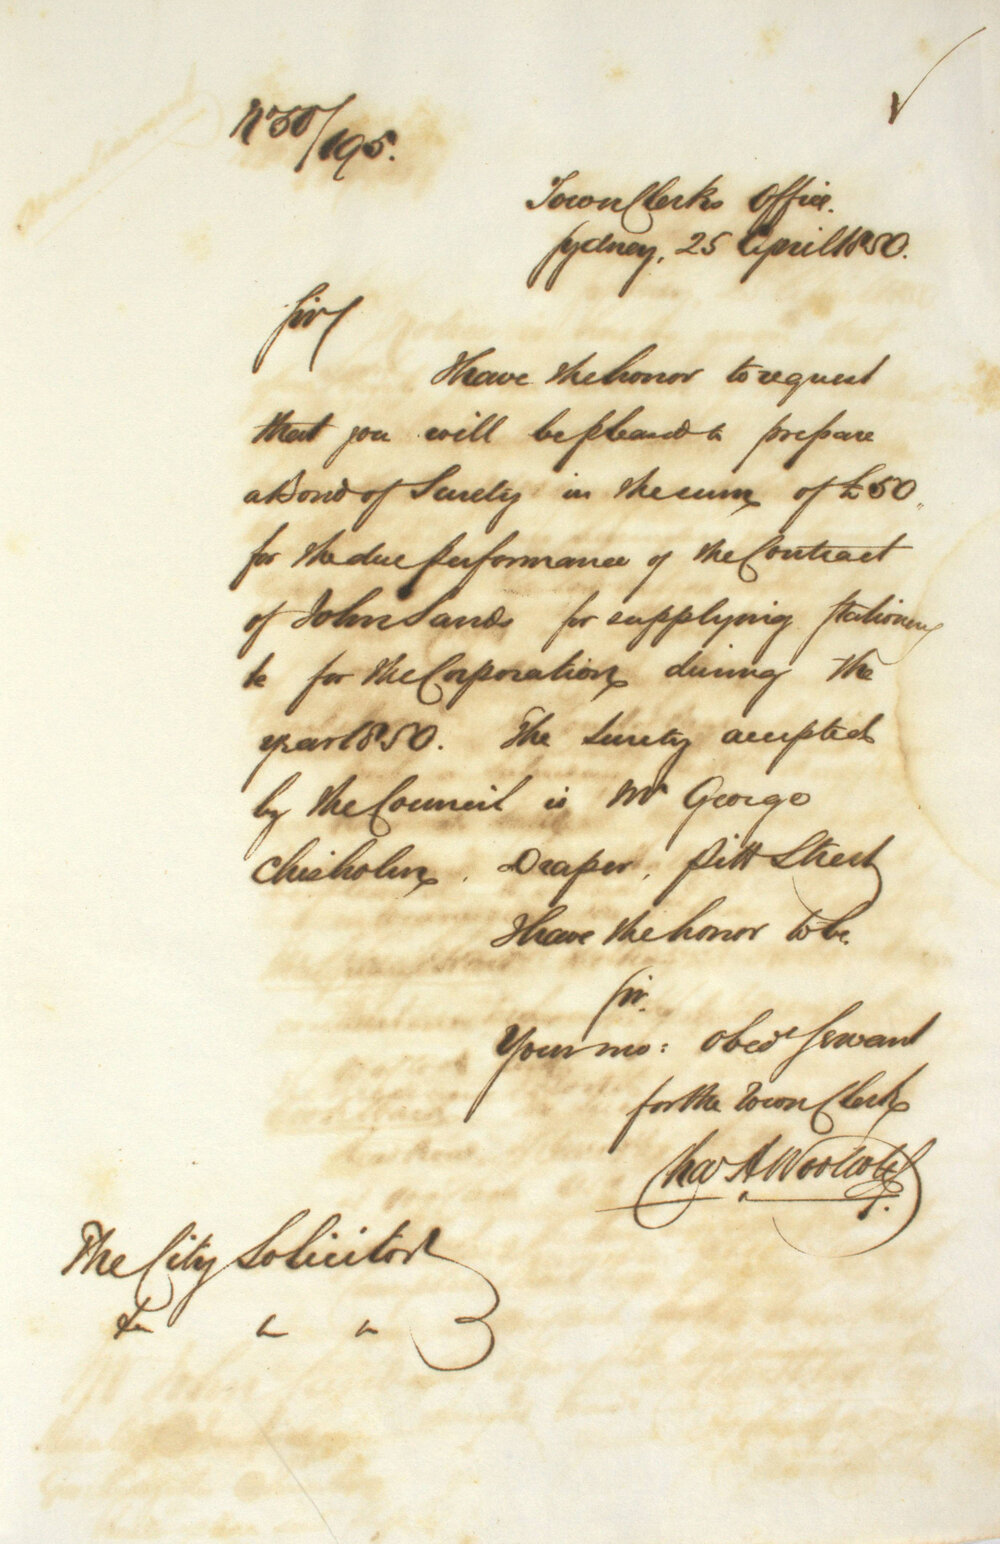 No 50/195.
Town Clerks Office.
Sydney, 25 April 1850.
Sir
I have the honor to request
that you will be pleased to prepare
a Bond of Surety in the sum of £50,
for the due performance of the Contract
of John Sands for supplying Stationery
&c for the Corporation during the
year 1850. The Surety accepted
by the Council is Mr George
Chisholm, Draper, Pitt Street
I have the honor to be
Sir.
Your mo: obedt Servant
for the Town Clerk
Chas H Woolcott
The City Solicitor
&c &c &c